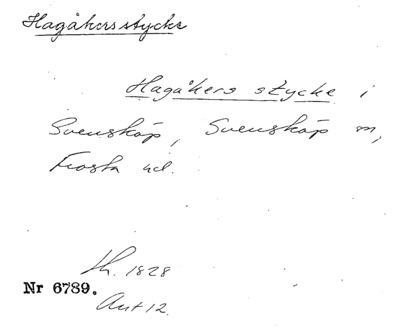 Hagåkersstycke
Hagåkers stycke i
Svensköp, Svensköp m,
Frosta hd.
Lh. 1828
Nr 6789.
Ant 12.